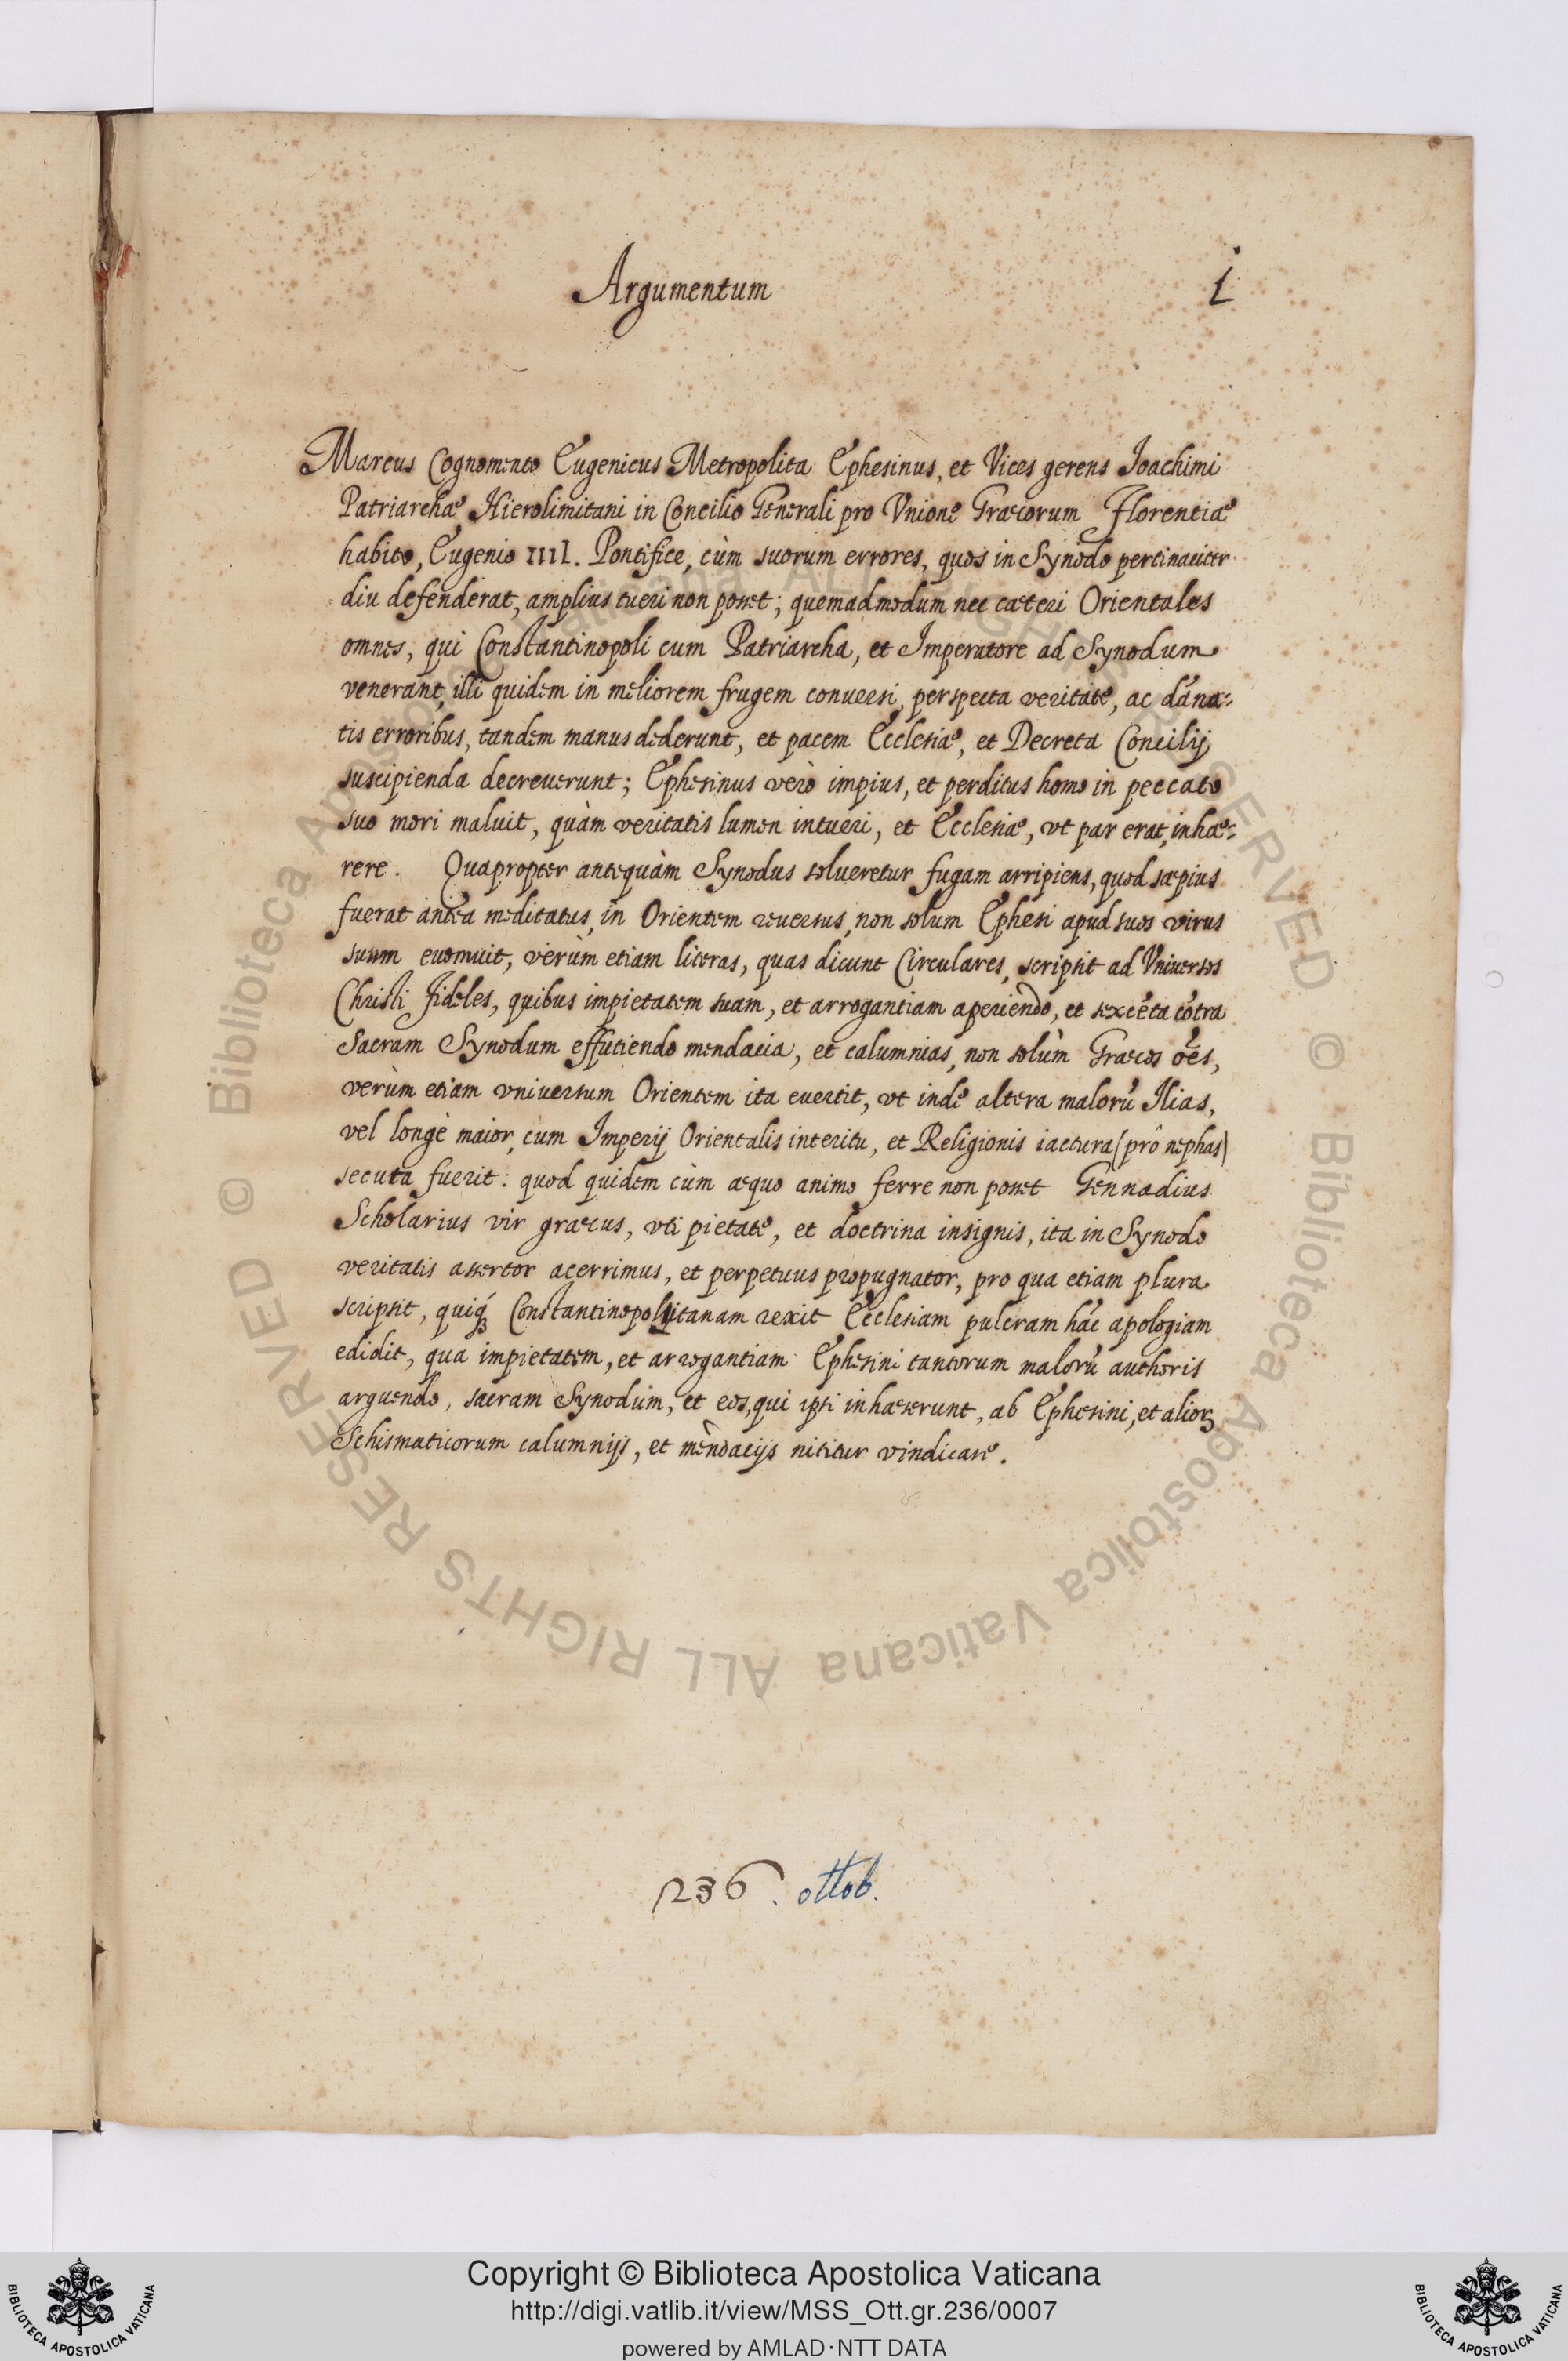 Argumentum
i
Marcus Cognomento Eugenicus Metropolita Ephesinus, et Vices gerens Joachimi
Patriarchæ Hierolimitani in Concilio Generali pro Vnione Græcorum Florentiæ
habito, Eugenio IIII. Pontifice, cùm suorum errores, quos in Synodo pertinaciter
diu defenderat, amplius tueri non posset; quemadmodum nec cæteri Orientales
omnes, qui Constantinopoli cum Patriarcha, et Imperatore ad Synodum
venerant, illi quidem in meliorem frugem conuersi, perspecta veritate, ac dãna-
tis erroribus, tandem manus dederunt, et pacem Ecclesiæ, et Decreta Concilij
suscipienda decreuerunt; Ephesinus verò impius, et perditus homo in peccato
suo mori maluit, quàm veritatis lumen intueri, et Ecclesiæ, vt par erat, inhæ-
rere. Quapropter antequàm Synodus solueretur fugam arripiens, quod sæpius
fuerat antea meditatus, in Orientem reuersus, non solum Ephesi apud suos virus
suum euomuit, verùm etiam literas, quas dicunt Circulares, scripsit ad Vniuersos
Christi fideles, quibus impietatem suam, et arrogantiam aperiendo, et sexcẽta cõtra
Sacram Synodum effutiendo mendacia, et calumnias, non solùm Græcos oẽs,
verùm etiam vniuersum Orientem ita euertit, vt inde altera malorũ Ilias,
vel longè maior, cum Imperij Orientalis interitu, et Religionis iactura (prô nephas)
secuta fuerit: quod quidem cùm æquo animo ferre non posset Gennadius
Scholarius vir græcus, vti pietate, et doctrina insignis, ita in Synodo
veritatis assertor acerrimus, et perpetuus propugnator, pro qua etiam plura
scripsit, quiq́ꝫ Constantinopolitanam rexit Ecclesiam pulcram hãc apologiam
edidit, qua impietatem, et arrogantiam Ephesini tantorum malorũ authoris
arguendo, sacram Synodum, et eos, qui ipsi inhæserunt, ab Ephesini, et alioꝝ
Schismaticorum calumnijs, et mendacijs nititur vindicare.
236. ottob.
© Biblioteca Apostolica Vaticana ALL RIGHTS RESERVED © Biblioteca Apostolica Vaticana ALL RIGHTS RESERVED
Copyright © Biblioteca Apostolica Vaticana
http://digi.vatlib.it/view/MSS_Ott.gr.236/0007
powered by AMLAD·NTT DATA
BIBLIOTECA APOSTOLICA VATICANA
BIBLIOTECA APOSTOLICA VATICANA